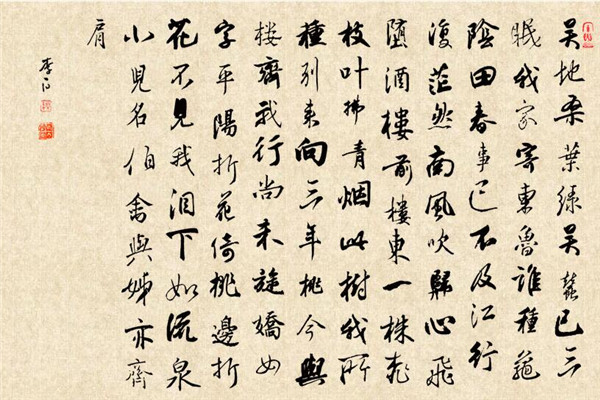 吴地桑葉绿吴蠶已三
眠我家寄東魯誰種龜
陰田春事已不及江行
復茫然南風吹歸心飛
墮酒樓前樓東一株桃
枝叶拂青烟此樹我所
種别来向三年桃今與
楼齊我行尚未旋嬌女
字平陽折花倚桃邊折
花不見我泪下如流泉
小兒名伯禽與姊亦齊
肩
李白